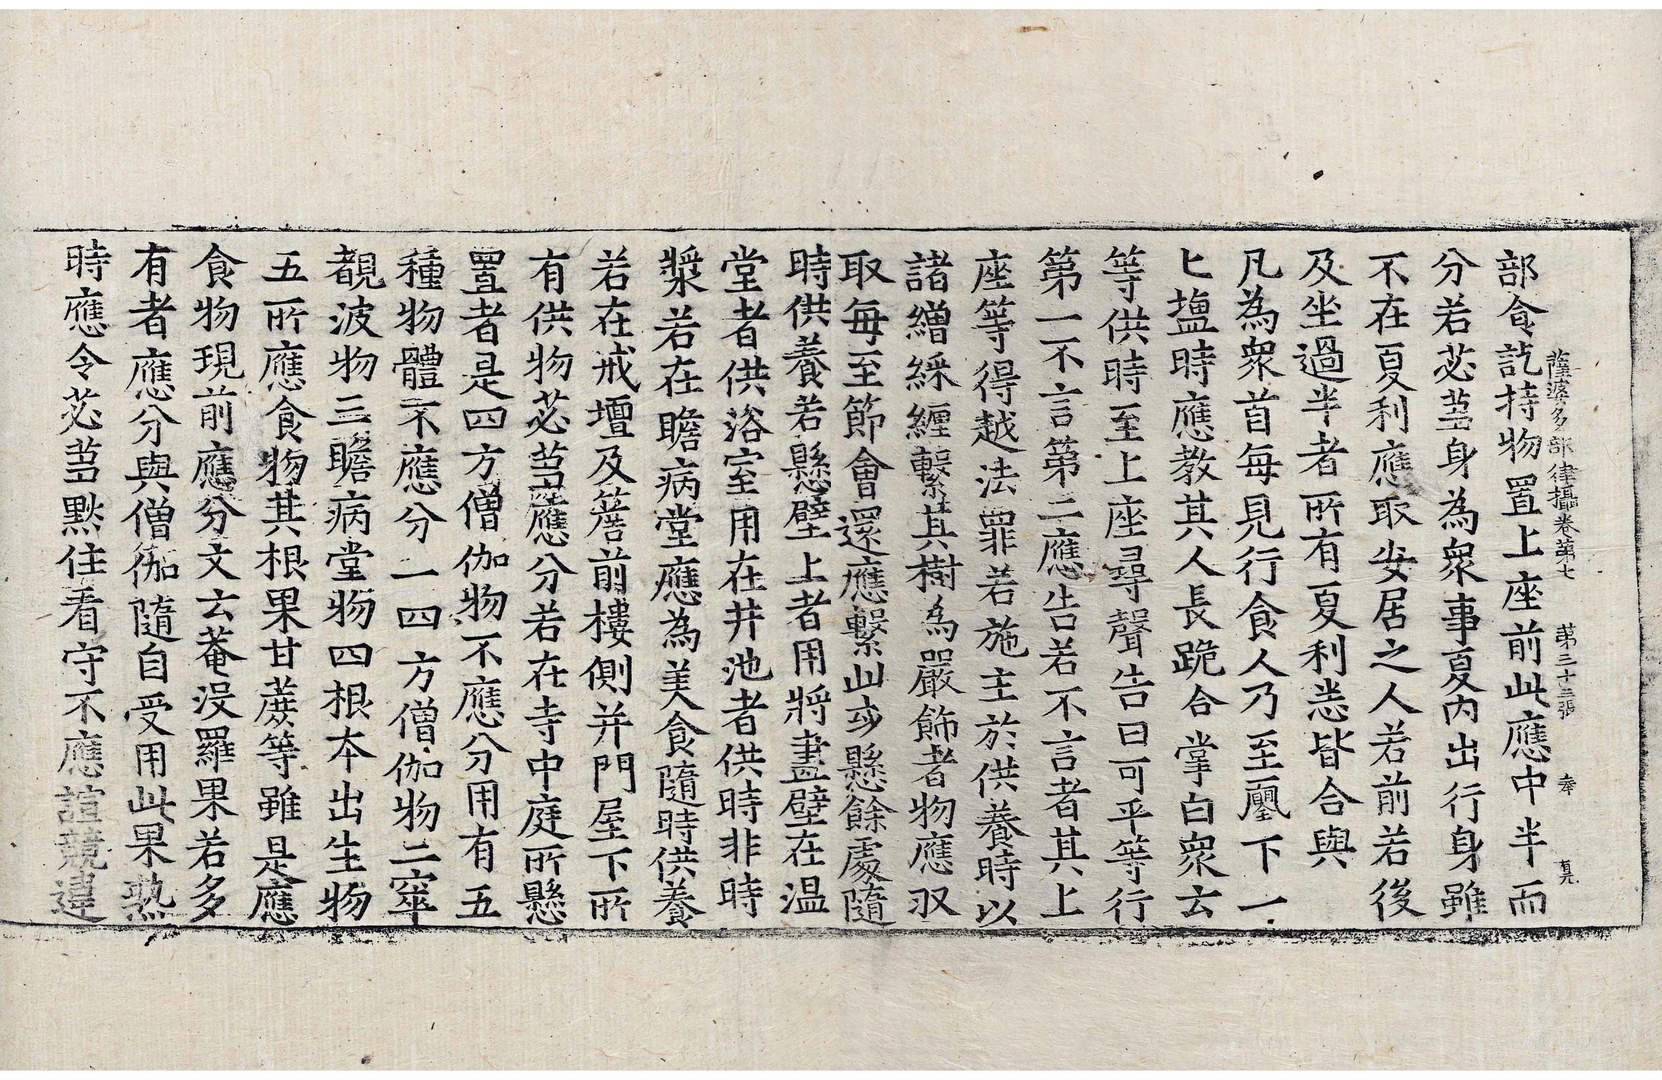 薩婆多部律攝卷第七　第三十三張　奉
部食訖持物置上座前此應中半而
分若苾芻身為眾事夏內出行身雖
不在夏利應取安居之人若前若後
及坐過半者所有夏利悉皆合與
凡為眾首每見行食人乃至嚫下一
匕塩時應教其人長跪合掌白眾云
等供時至上座尋聲告曰可平等行
第一不言第二應告若不言者其上
座等得越法罪若施主於供養時以
諸繒綵纏繫其樹為嚴飾者物應収
取每至節會還應繫此或懸餘處隨
時供養若懸壁上者用將畫壁在溫
堂者供浴室用在井池者供時非時
漿若在瞻病堂應為美食隨時供養
若在戒壇及簷前樓側并門屋下所
有供物苾芻應分若在寺中庭所懸
置者是四方僧伽物不應分用有五
種物體不應分一四方僧伽物二窣
覩波物三瞻病堂物四根本出生物
五所應食物其根果甘蔗等雖是應
食物現前應分文云菴沒羅果若多
有者應分與僧伽隨自受用此果熟
時應令苾芻㸃住看守不應諠競違